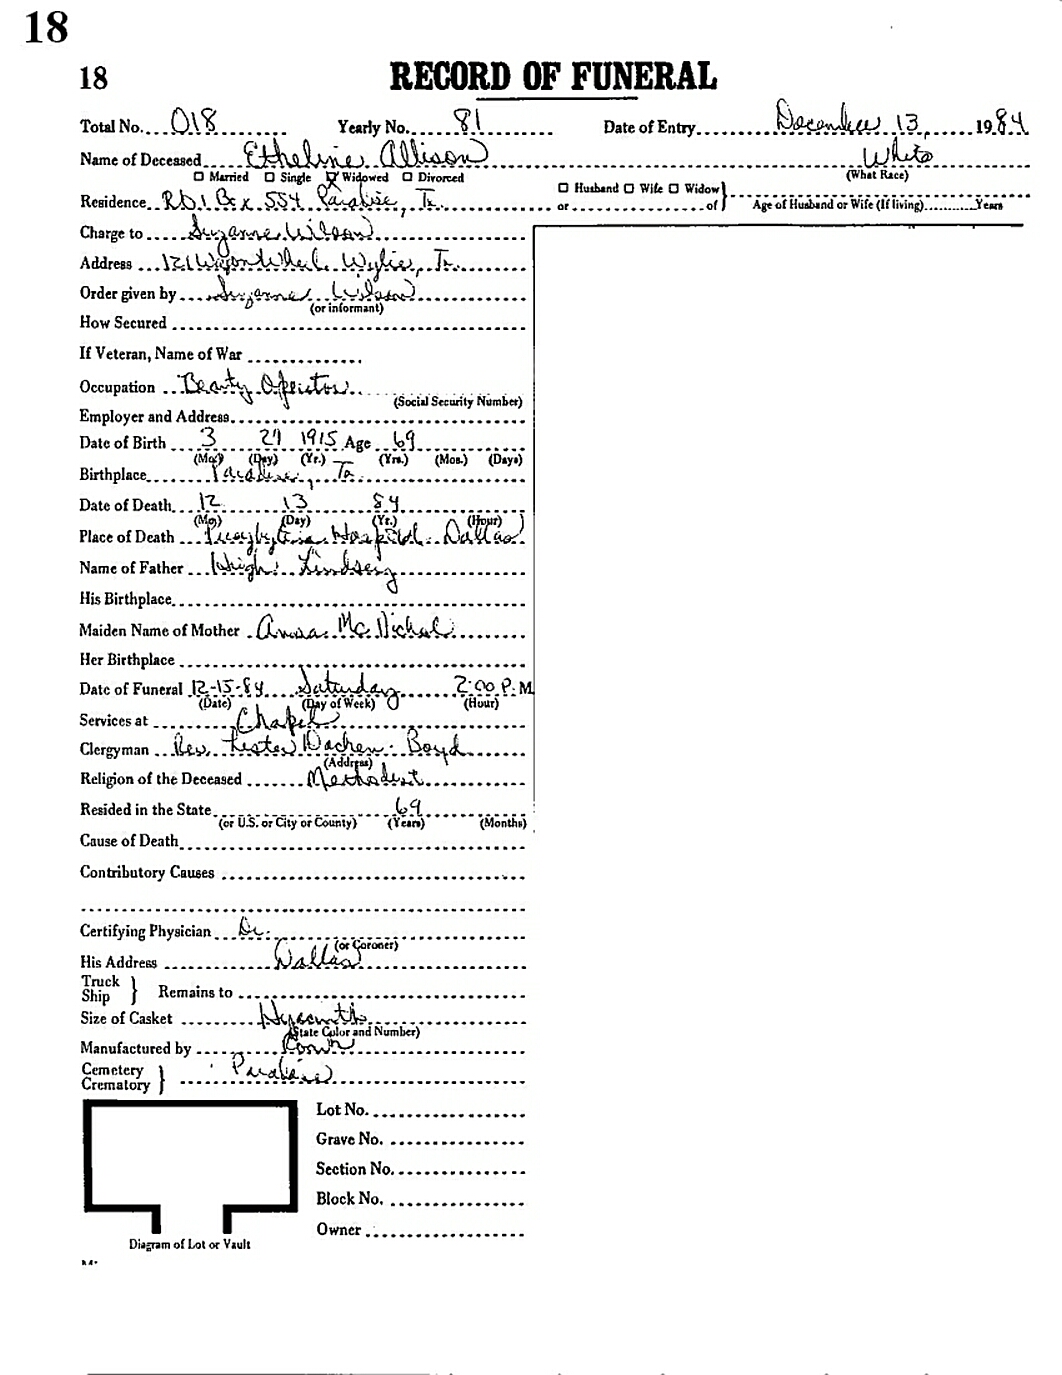 18
18 RECORD OF FUNERAL
Total No. 018 Yearly No. 81 Date of Entry December 13, 1984
Name of Deceased Etheline Allison White
☐ Married ☐ Single ☑ Widowed ☐ Divorced (What Race)
☐ Husband ☐ Wife ☐ Widow
Residence Rt 1 Box 554 Paradise, Tx. or of Age of Husband or Wife (If living) Years
Charge to Suzanne Wilson
Address 121 Wagon Wheel Wylie, Tx.
Order given by Suzanne Wilson
(or informant)
How Secured
If Veteran, Name of War
Occupation Beauty Opeator
(Social Security Number)
Employer and Address
Date of Birth 3 29 1915 Age 69
(Mo.) (Day) (Yr.) (Yrs.) (Mos.) (Days)
Birthplace Paradise, Tx.
Date of Death 12 13 84
(Mo.) (Day) (Yr.) (Hour)
Place of Death Hospital Dallas
Name of Father Lindsey
His Birthplace
Maiden Name of Mother Anna McNichol
Her Birthplace
Date of Funeral 12-15-84 Saturday 2:00 P.M
(Date) (Day of Week) (Hour)
Services at Chapel
Clergyman Rev. Lester Boyd
(Address)
Religion of the Deceased Methodist
Resided in the State 69
(or U.S. or City or County) (Years) (Months)
Cause of Death
Contributory Causes
Certifying Physician Dr.
(or Coroner)
His Address Dallas
Truck
Ship } Remains to
Size of Casket Hyacinth
(State Color and Number)
Manufactured by
Cemetery
Crematory } Paradise
Lot No.
Grave No.
Section No.
Block No.
Owner
Diagram of Lot or Vault